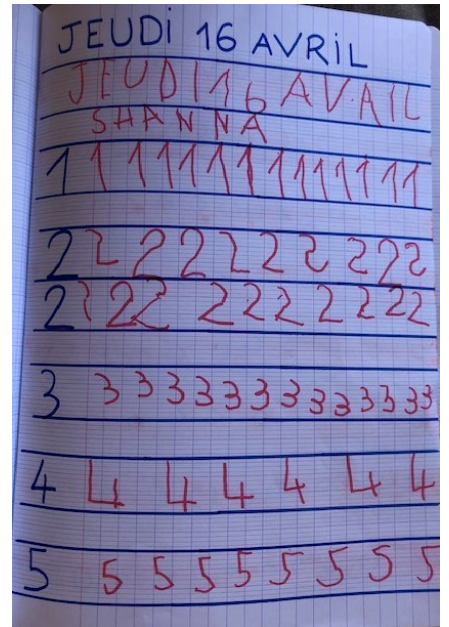 JEUDi 16 AVRiL
JEUDI 16 AVAIL
SHANNA
1 1 1 1 1 1 1 1 1 1 1 1 1 1
2 2 2 2 2 2 2 2 2 2
2 2 2 2 2 2 2 2 2 2 2
3 3 3 3 3 3 3 3 3 3 3 3 3
4 4 4 4 4 4 4
5 5 5 5 5 5 5 5 5